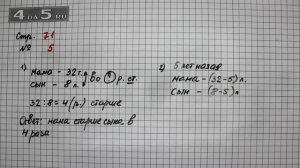 4 ДА 5 RU
Стр. 71
№ 5
1)
мама - 32 г.
сын - 8 л.
во ? р. ст.
32:8=4 (р.) старше
Ответ: мама старше сына в
4 раза
2)
5 лет назад
мама - (32-5) л.
сын - (8-5) л.